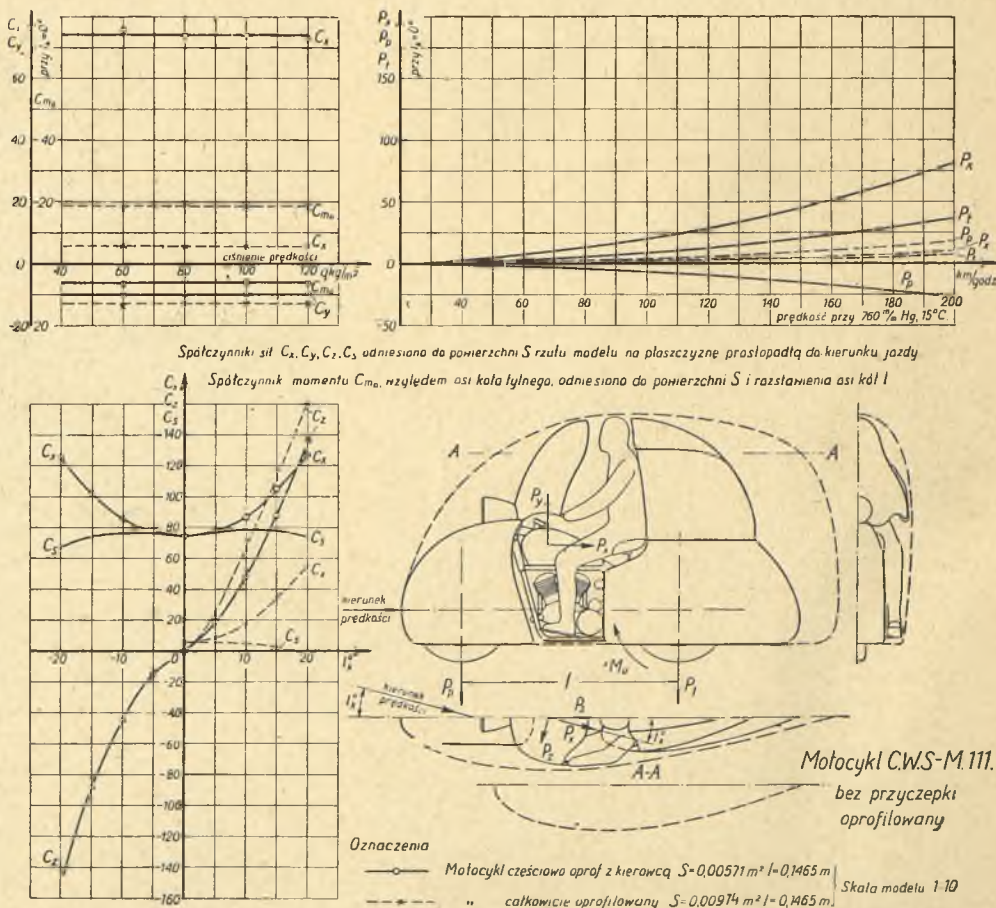 Cx
Cy
przy
60
Cm₀
40
20
0
-20
40
60
80
100
120
q kg/m²
ciśnienie prędkości
Cx
Cm₀
Cx
Cm₀
Cy
Px
Pp
Pt
przy
175
100
75
50
25
0
-50
40
60
80
100
120
140
160
180
200
km/godz
prędkość przy 760 m/m Hg, 15°C.
Px
Pt
Pp
Px
Pt
Pp
Spółczynniki sił Cx, Cy, Cz, Cs odniesiono do powierzchni S rzutu modelu na płaszczyznę prostopadłą do kierunku jazdy
Spółczynnik momentu Cm₀, względem osi koła tylnego, odniesiono do powierzchni S i rozstawienia osi kół l
Cx
Cz
Cs
140
120
100
80
60
40
20
0
-20
-40
-60
-80
-100
-120
-140
-160
-20
-10
10
20
Cx
Cs
Cz
Cz
Cx
Cs
Cx
Cs
kierunek
prędkości
A
A
Py
Px
Mo
Pp
l
Pt
kierunek
prędkości
Ps
Px
A-A
Motocykl C.W.S-M.111.
bez przyczepki
oprofilowany
Oznaczenia
Motocykl częściowo oprof z kierowcą S=0,00571 m² l=0,1465 m
" całkowicie oprofilowany S=0,00974 m² l=0,1465 m
Skala modelu 1-10